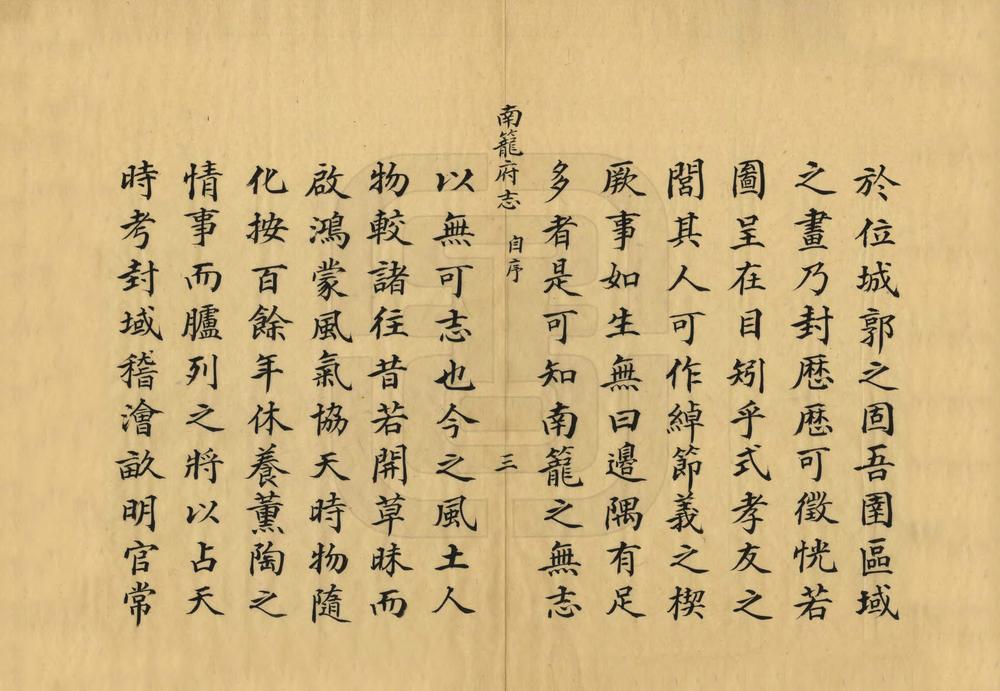 於位城郭之固吾圉區域
之畫乃封歷歷可徵恍若
圖呈在目矧乎式孝友之
閭其人可作綽節義之楔
厥事如生無曰邊隅有足
多者是可知南籠之無志
南籠府志 自序 三
以無可志也今之風土人
物較諸往昔若開草昧而
啟鴻蒙風氣協天時物隨
化按百餘年休養薰陶之
情事而臚列之將以占天
時考封域稽澮畝明官常